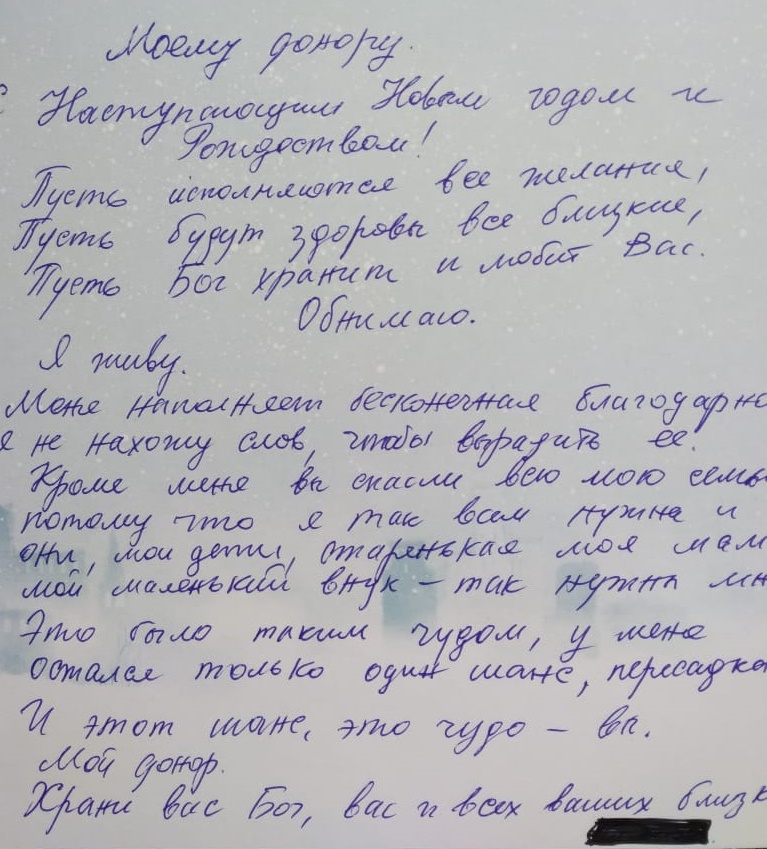 Моему донору.
С Наступающим Новым годом и
Рождеством!
Пусть исполняются все желания,
Пусть будут здоровы все близкие,
Пусть Бог хранит и любит Вас.
Обнимаю.
Я живу.
Меня наполняет бесконечная благодарно
я не нахожу слов, чтобы выразить ее.
Кроме меня вы спасли всю мою семь
потому что я так всем нужна и
они, мои дети, старенькая моя мам
мой маленький внук – так нужны мн
Это было таким чудом, у меня
остался только один шанс, пересадка
И этот шанс, это чудо – вы.
Мой донор.
Храни вас Бог, вас и всех ваших близк